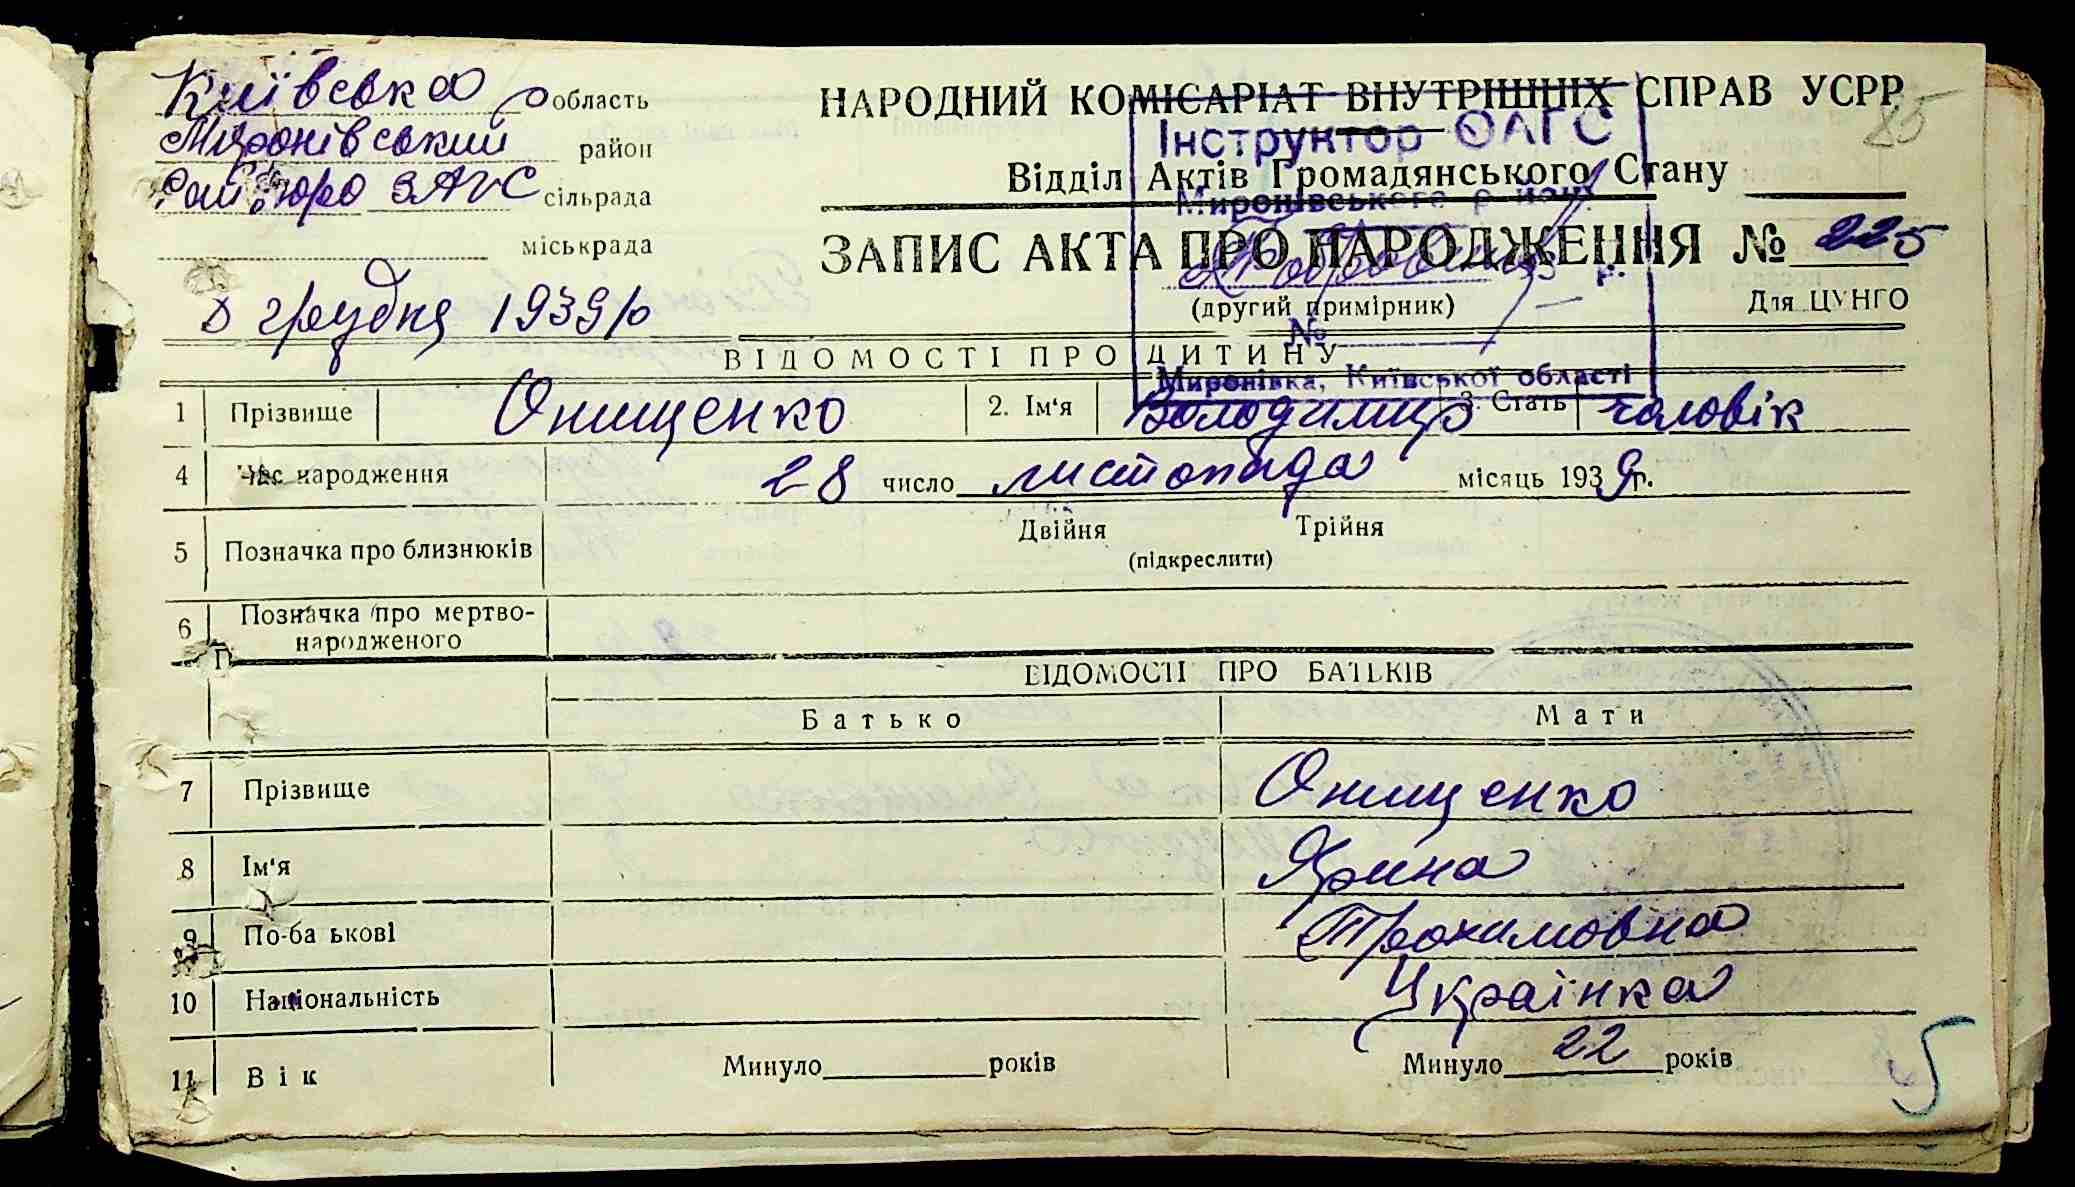 Київська область
Миронівський район
Рай бюро ЗАГС сільрада
міськрада
грудня 1939 р
НАРОДНИЙ КОМІСАРІАТ ВНУТРІШНІХ СПРАВ УСРР
85
Інструктор ОАГС
Відділ Актів Громадянського Стану
Миронівського р-йону
ЗАПИС АКТА ПРО НАРОДЖЕННЯ № 225
(другий примірник) Для ЦУНГО
№
ВІДОМОСТІ ПРО ДИТИНУ
Миронівка, Київської області
1 Прізвище Онищенко 2. Ім'я Володимир 3. Стать чоловік
4 Час народження 28 число листопада місяць 1939 р.
5 Позначка про близнюків Двійня Трійня
(підкреслити)
6 Позначка про мертво-
народженого
ВІДОМОСТІ ПРО БАТЬКІВ
Батько Мати
7 Прізвище Онищенко
8 Ім'я Ярина
9 По-ба ькові Трохимовна
10 Національність Українка
11 Вік Минуло років Минуло 22 років
5